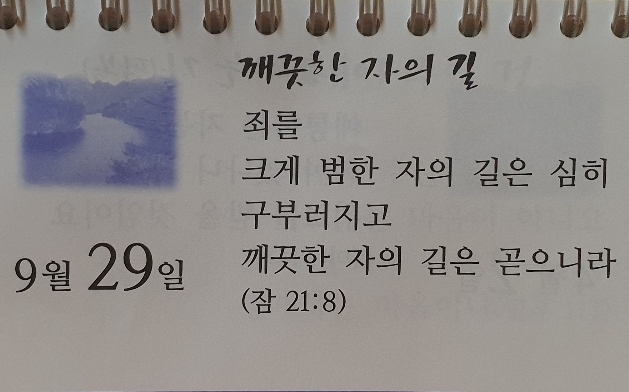 깨끗한 자의 길
죄를
크게 범한 자의 길은 심히
구부러지고
깨끗한 자의 길은 곧으니라
(잠 21:8)
9월 29일